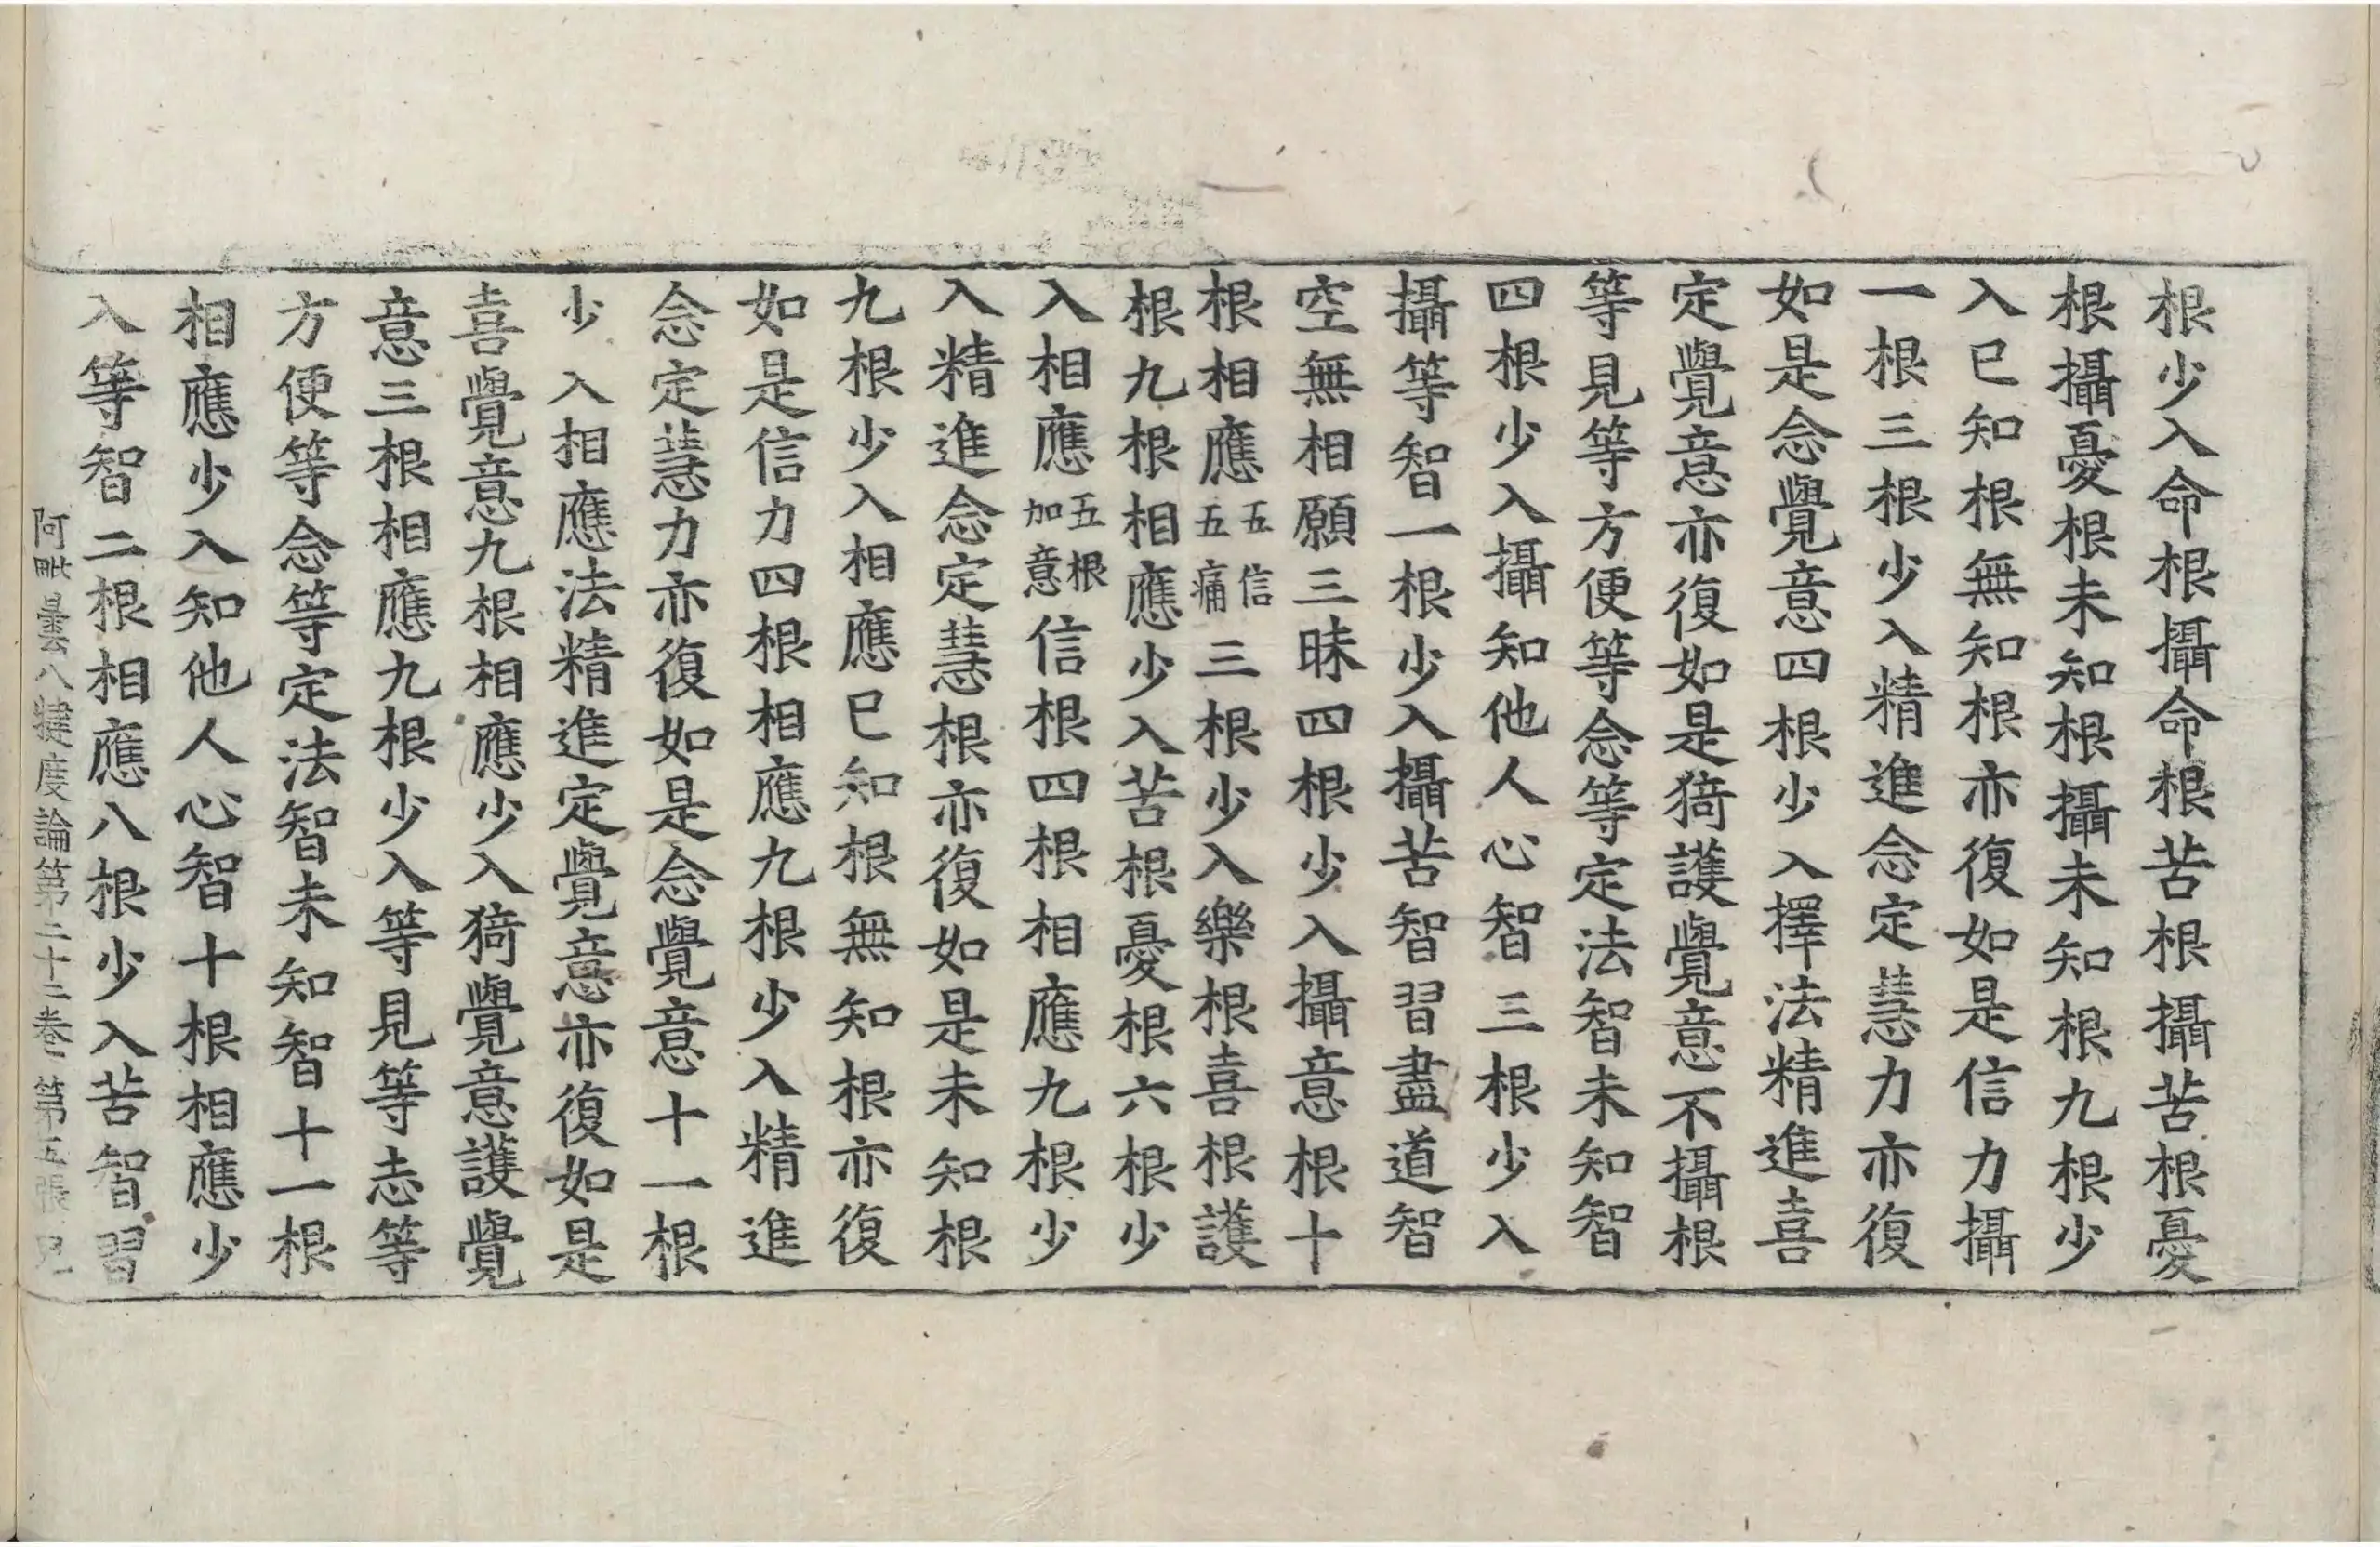 根少入命根攝命根苦根攝苦根憂
根攝憂根未知根攝未知根九根少
入已知根無知根亦復如是信力攝
一根三根少入精進念定慧力亦復
如是念覺意四根少入擇法精進喜
定覺意亦復如是猗護覺意不攝根
等見等方便等念等定法智未知智
四根少入攝知他人心智三根少入
攝等智一根少入攝苦智習盡道智
空無相願三昧四根少入攝意根十
根相應五信五痛三根少入樂根喜根護
根九根相應少入苦根憂根六根少
入相應五根加意信根四根相應九根少
入精進念定慧根亦復如是未知根
九根少入相應已知根無知根亦復
如是信力四根相應九根少入精進
念定慧力亦復如是念覺意十一根
少入相應法精進定覺意亦復如是
喜覺意九根相應少入猗覺意護覺
意三根相應九根少入等見等志等
方便等念等定法智未知智十一根
相應少入知他人心智十根相應少
入等智二根相應八根少入苦智習
阿毗曇八揵度論第二十二卷 第五張